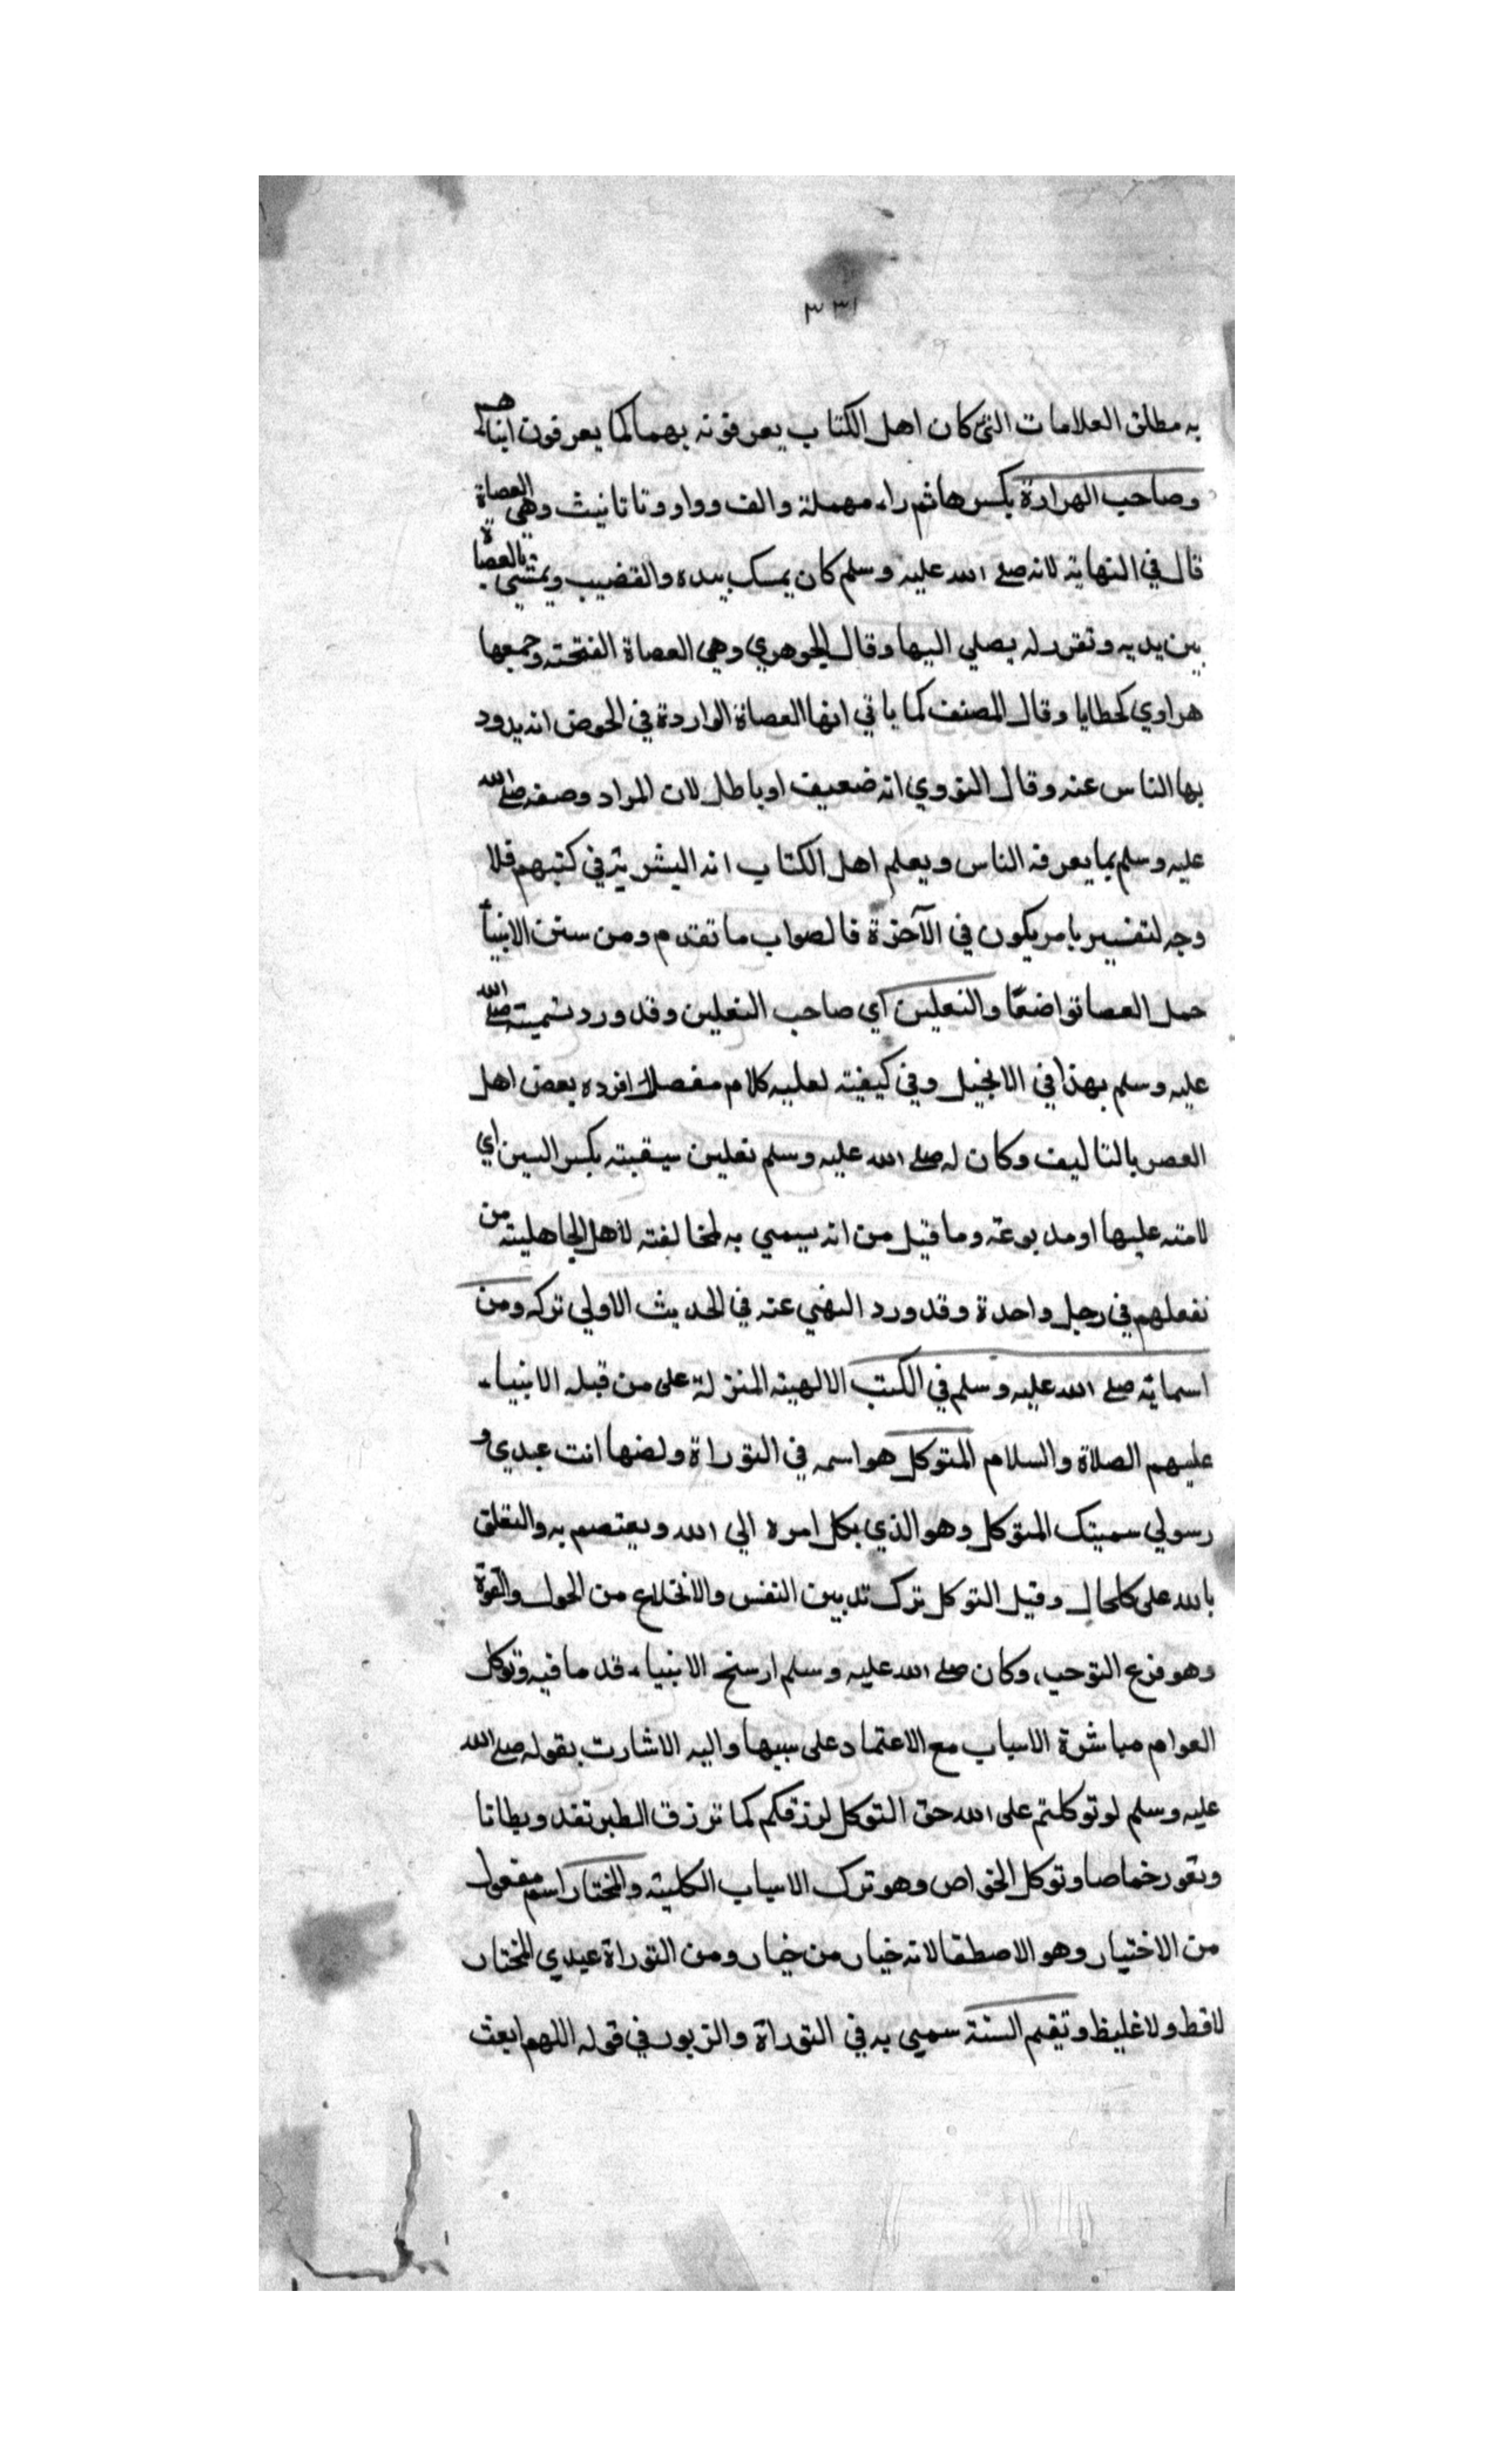 ٣٣١
به مطلق العلامات التي كان اهل الكتاب يعرفونه بهما كما يعرفون ابناهم
وصاحب الهرارة بكسر هاثم راء مهملة والف وواو وتا تانيث وهي العصاة
قال في النهاية لانه صلى الله عليه وسلم كان يمسك بيده والقضيب ويمشي بالعصاة
بين يديه وتقرر له يصلي اليها وقال الجوهري وهي العصاة الفتحته وجمعها
هراوي كخطايا وقال المصنف كما ياتي انها العصاة الواردة في الحوض انه يدود
بها الناس عنه وقال النووي انه ضعيف او باطل لان المراد وصفه صلى الله
عليه وسلم بما يعرفه الناس ويعلم اهل الكتاب انه البشر في كتبهم فلا
وجه لتفسير بامر يكون في الآخرة فالصواب ما تقدم ومن سنن الانبيأ
حمل العصا تواضعًا والنعلين اي صاحب النعلين وقد ورد تسميته صلى الله
عليه وسلم بهذا في الانجيل وفي كيفيته لعليه كلام مفصل افرده بعض اهل
العصر بالتاليف وكان له صلى الله عليه وسلم نعلين سبقبته بكسر السين اي
لامته عليها او مدبوغة وما قيل من انه يسمي به لمخالفته لاهل الجاهلية من
نفعلهم في رجل واحدة وقد ورد النهي عنه في الحديث الاولي تركه ومن
اسمايه صلى الله عليه وسلم في الكتب الالهية المنزلة على من قبله الانبياء
عليهم الصلاة والسلام المتوكل هو اسمه في التوراة ولضها انت عبدي و
رسولي سميتك المتوكل وهو الذي بكل امره الي الله ويعتصم به والتعلق
بالله على كلحال وقيل التوكل ترك تدبين النفس والانخلاع من الحول والقوة
وهو فرع التوحيد وكان صلى الله عليه وسلم ارسخ الانبياء قدما فيه وتوكل
العوام مباشرة الاسباب مع الاعتماد على سببها واليه الاشارت بقوله صلى الله
عليه وسلم لو توكلتم على الله حق التوكل لرزقكم كما ترزق الطير تغد وبطانا
وتعور خماصا وتوكل الخواص وهو ترك الاسباب الكلية والمختار اسم مفعول
من الاختيار وهو الاصطفا لانه خيار من خيار ومن التوراة عبدي المختار
لا فظ ولا غليظ وتقيم السنة سمي به في التوراة والزبور في قوله اللهم ابعث